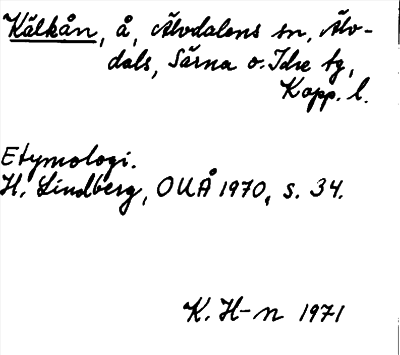 Kälkån, å, Älvdalens sn, Älv-
dals, Särna o. Idre tg,
Kopp. l.
Etymologi.
H. Lindberg, OUÅ 1970, s. 34.
K. H-n 1971